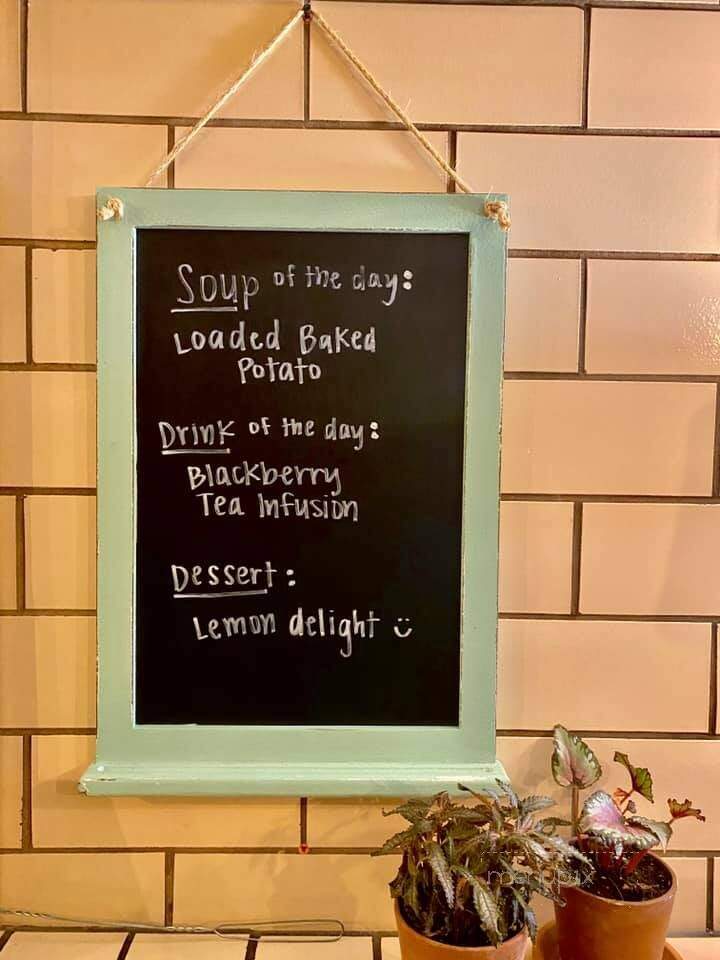 Soup of the day:
Loaded Baked
Potato
Drink of the day:
Blackberry
Tea Infusion
Dessert:
Lemon delight
menupix